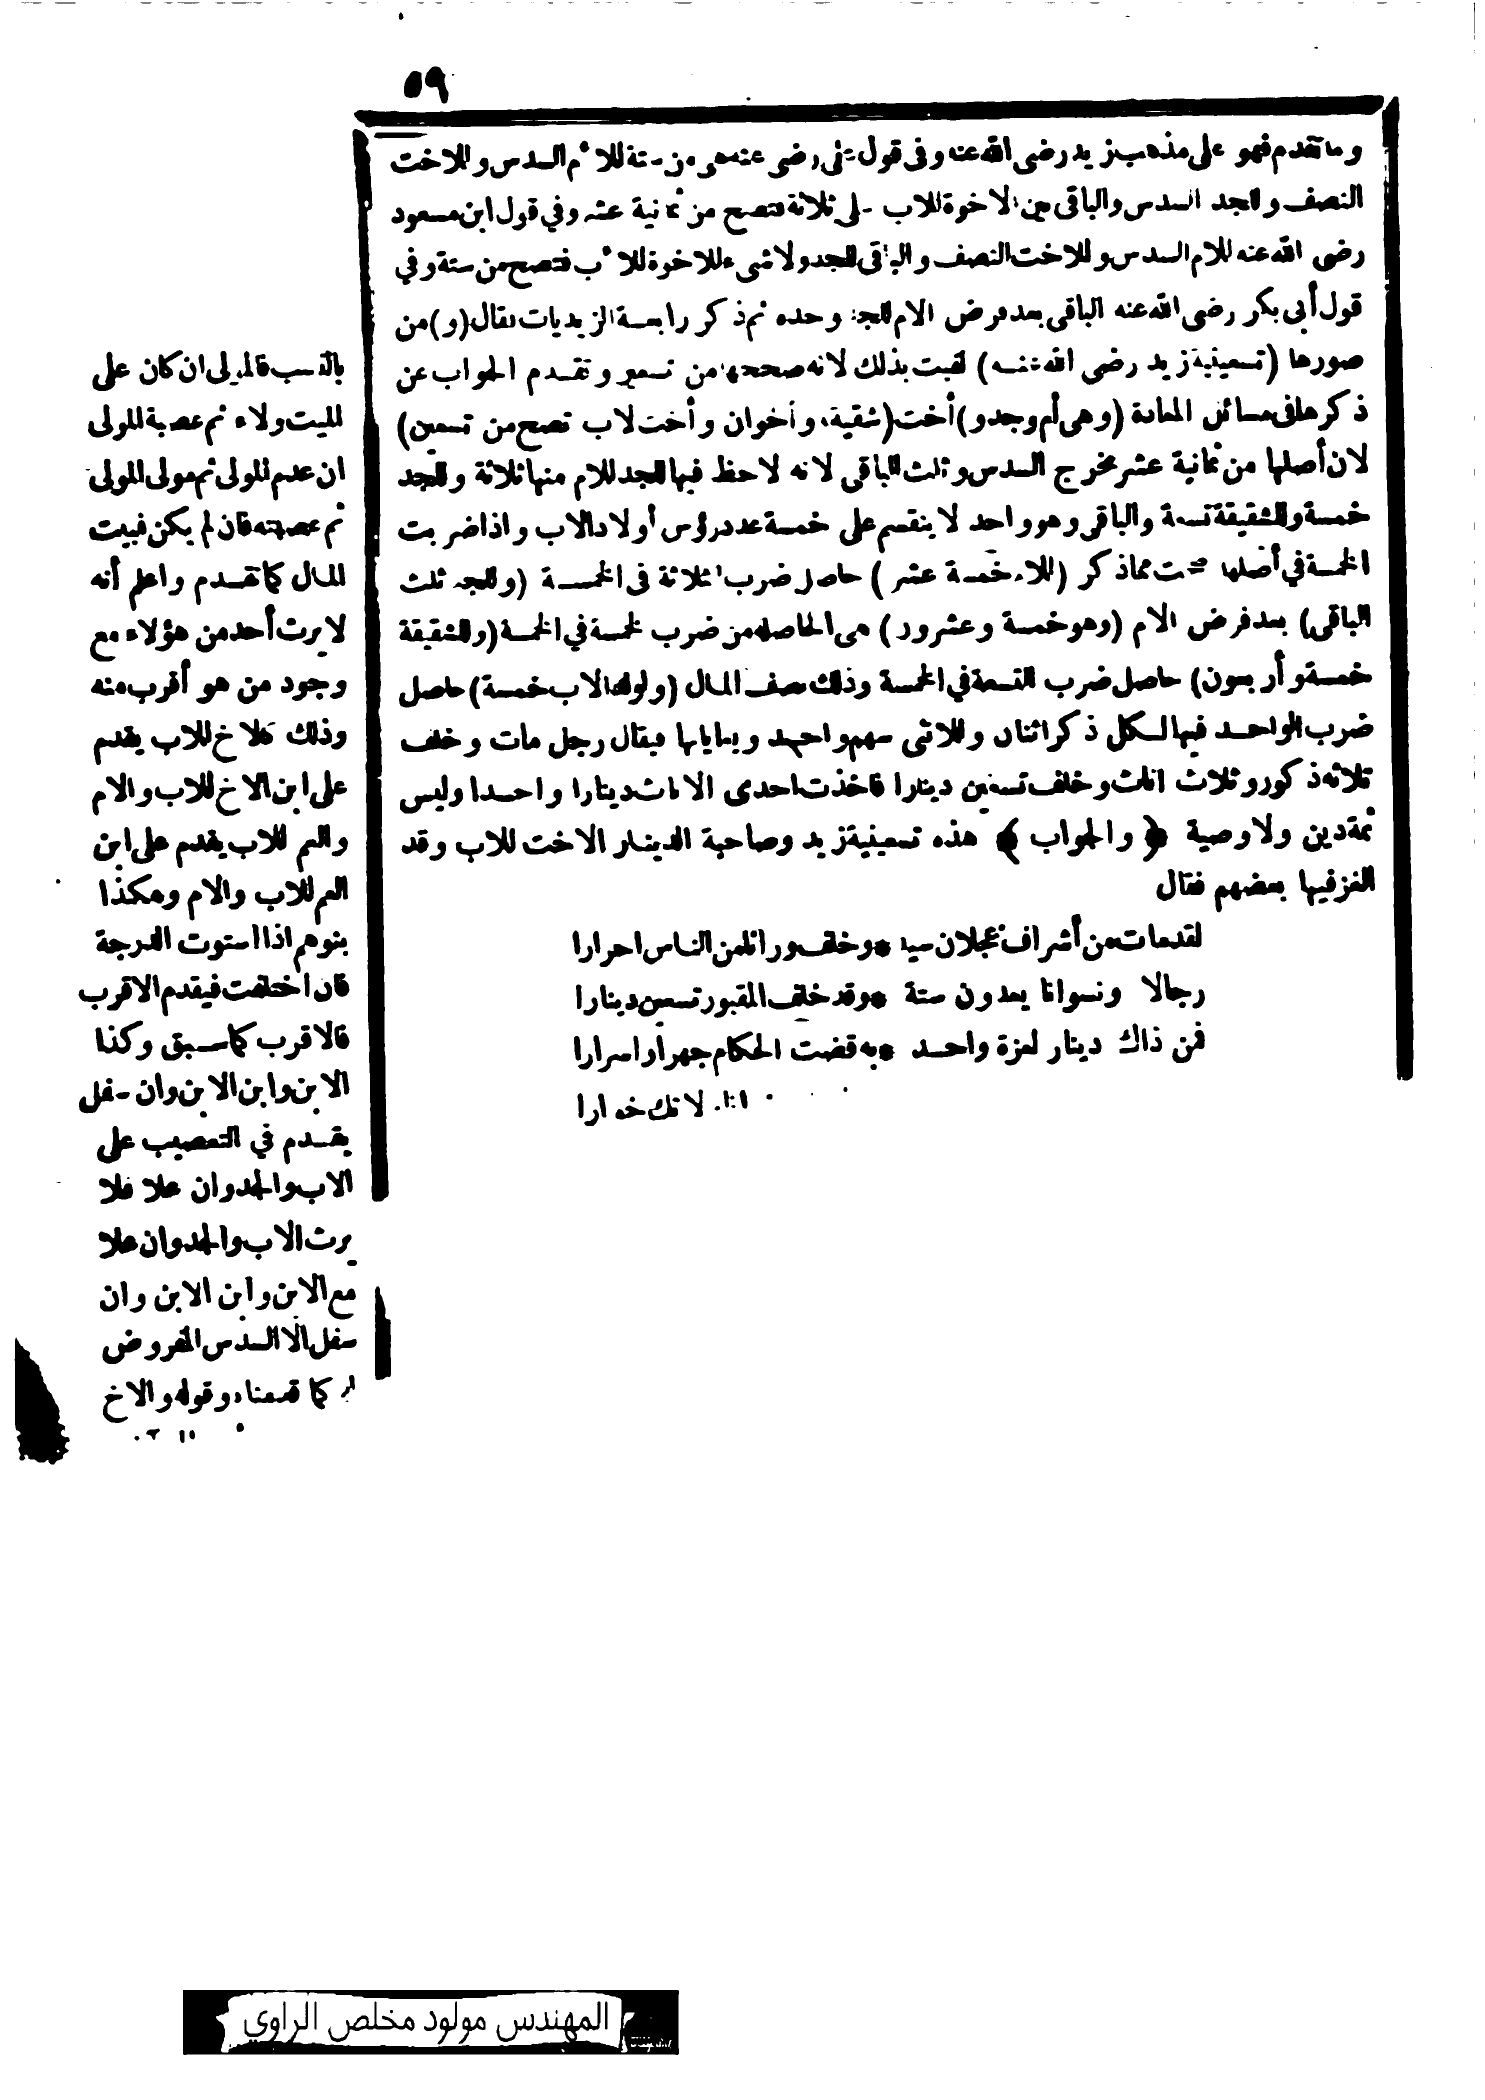 ٥٩
وما تقدم فهو على مذهب زيد رضى الله عنه وفى قول على رضى عنه هى من ستة للام السدس وللاخت
النصف وللجد السدس والباقى بين الاخوة للاب على ثلاثة فتصح من ثمانية عشر وفي قول ابن مسعود
رضى الله عنه للام السدس وللاخت النصف والباقى للجد ولا شىء للاخوة للاب فتصح من ستة وفي
قول أبى بكر رضى الله عنه الباقى بعد فرض الام للجد وحده ثم ذكر رابعة الزيديات فقال (و) من
صورها (تسعينية زيد رضى الله عنه) لقبت بذلك لانه صححها من تسعين وتقدم الجواب عن
ذكرها فى مسائل المعادة (وهى أم وجد و) أخت (شقيقة وأخوان وأخت لاب تصح من تسعين)
لان أصلها من ثمانية عشر مخرج السدس وثلث الباقى لانه لاحظ فيها للجد للام منها ثلاثة وللجد
خمسة وللشقيقة تسعة والباقى وهو واحد لا ينقسم على خمسة عدد رؤس أولاد الاب واذا ضربت
الخمسة في أصلها صحت مما ذكر (للام خمسة عشر) حاصل ضرب الثلاثة فى الخمسة (وللجد ثلث
الباقى) بعد فرض الام (وهو خمسة وعشرون) هى الحاصلة من ضرب خمسة في الخمسة (وللشقيقة
خمسة وأربعون) حاصل ضرب التسعة في الخمسة وذلك نصف المال (ولولد الاب خمسة) حاصل
ضرب الواحد فيها لكل ذكر اثنان وللانثى سهم واحد ويعايا بها فيقال رجل مات وخلف
ثلاثة ذكور وثلاث اناث وخلف تسعين دينارا فاخذت احدى الاناث دينارا واحدا وليس
ثمة دين ولا وصية ﴿والجواب﴾ هذه تسعينية زيد وصاحبة الدينار الاخت للاب وقد
ألغز فيها بعضهم فقال
لقد مات من أشراف عجلان سيد * وخلف وراثا من الناس احرارا
رجالا ونسوانا يعدون ستة * وقد خلف المقبور تسعين دينارا
فمن ذاك دينار لعزة واحد * به قضت الحكام جهرا واسرارا
لا تك
بالنسب فالمولى ان كان على
الميت ولاء ثم عصبة المولى
ان عدم المولى ثم مولى المولى
ثم عصبته فان لم يكن فبيت
المال كما تقدم واعلم أنه
لا يرث أحد من هؤلاء مع
وجود من هو أقرب منه
وذلك كالاخ للاب يقدم
على ابن الاخ للاب والام
والعم للاب يقدم على ابن
العم للاب والام وهكذا
بنوهم اذا استوت الدرجة
فان اختلفت فيقدم الاقرب
فالاقرب كما سبق وكذا
الابن وابن الابن وان سفل
يقدم في التعصيب على
الاب والجد وان علا فلا
يرث الاب والجد وان علا
مع الابن وابن الابن وان
سفل الا السدس المفروض
له كما قدمناه وقوله والاخ
المهندس مولود مخلص الراوي